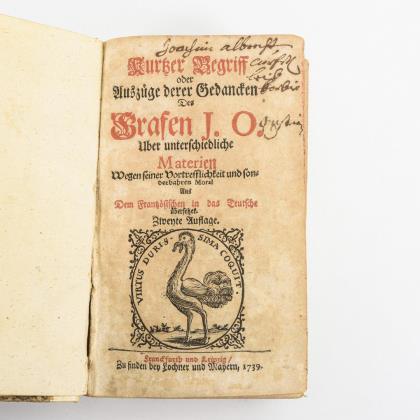 Joachim albrecht
Kurtzer Begriff
oder
Auszüge derer Gedancken
Des
Grafen J. O.
Uber unterschiedliche
Materien
Wegen seiner Vortrefflichkeit und son-
derbahren Moral
Aus
Dem Frantzösischen in das Teutsche
übersetzet.
Zweyte Auflage.
VIRTUS DURIS-
SIMA COQUIT
Franckfurth und Leipzig/
Zu finden bey Lochner und Mayern, 1739.